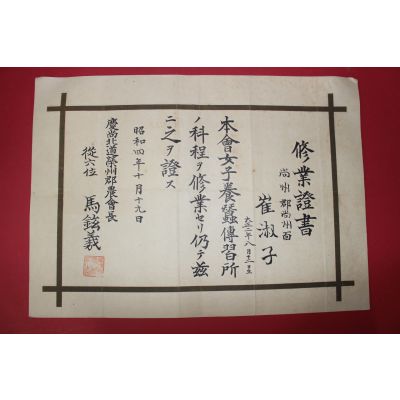 修業證書
尚州郡尚州面
崔淑子
大正二年八月十二日生
本會女子養蠶傳習所
ノ科程ヲ修業セリ仍テ玆
ニ之ヲ證ス
昭和四年十月十九日
慶尚北道尚州郡農會長
從六位 馬鉉義